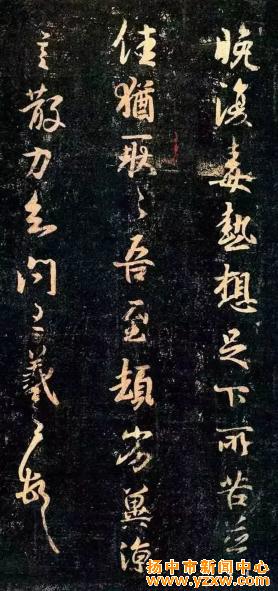 晚复毒热想足下所苦并
佳犹耿耿吾至顿劣冀凉
言散力知问王羲之报
扬中市新闻中心
www.yzxw.com